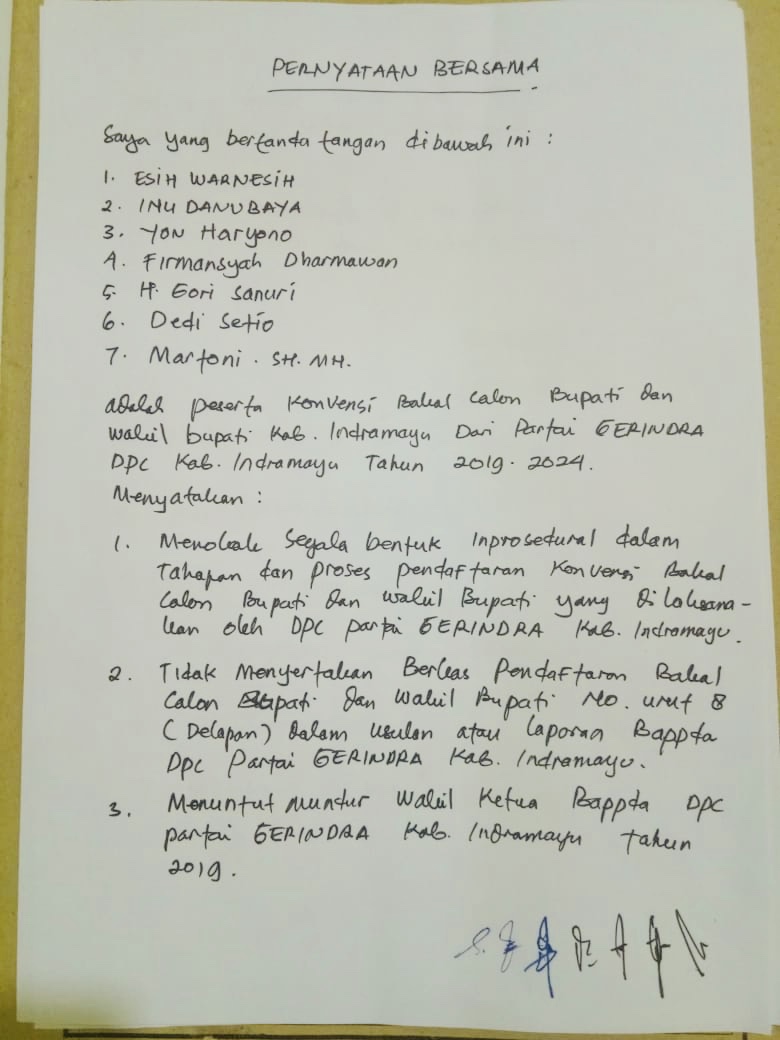 PERNYATAAN BERSAMA
Saya yang bertanda tangan dibawah ini :
1. ESIH WARNESIH
2. INU DANUBAYA
3. YON Haryono
4. Firmansyah Dharmawan
5. H. Gori Sanuri
6. Dedi Setio
7. Martoni . SH. MH.
adalah peserta Konvensi Bakal Calon Bupati dan
wakil bupati Kab. Indramayu Dari Partai GERINDRA
DPC Kab. Indramayu Tahun 2019-2024.
Menyatakan :
1. Menolak Segala bentuk Inprosedural dalam
Tahapan dan proses pendaftaran Konvensi Bakal
Calon Bupati dan wakil Bupati yang dilaksana-
kan oleh DPC partai GERINDRA Kab. Indramayu.
2. Tidak Menyertakan Berkas Pendaftaran Bakal
Calon Bupati dan Wakil Bupati No. urut 8
(Delapan) dalam usulan atau laporan Bappda
DPC Partai GERINDRA Kab. Indramayu.
3. Menuntut mundur Wakil Ketua Bappda DPC
partai GERINDRA Kab. Indramayu Tahun
2019.